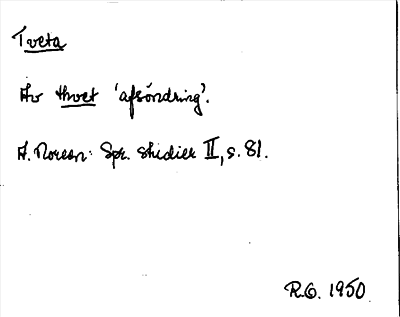 Tveta
Av thvet 'afsöndring'.
A. Noreen: Spr. studier II, s. 81.
R.G. 1950